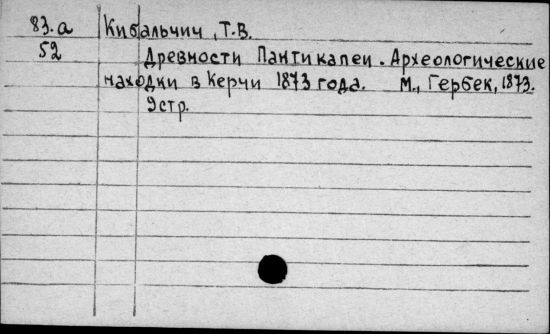 83.а Кибальчич, Т.В.
52 Древности Пантикапеи. Археологические
находки в Керчи 1873 года. М., Гербек, 1873.
9стр.